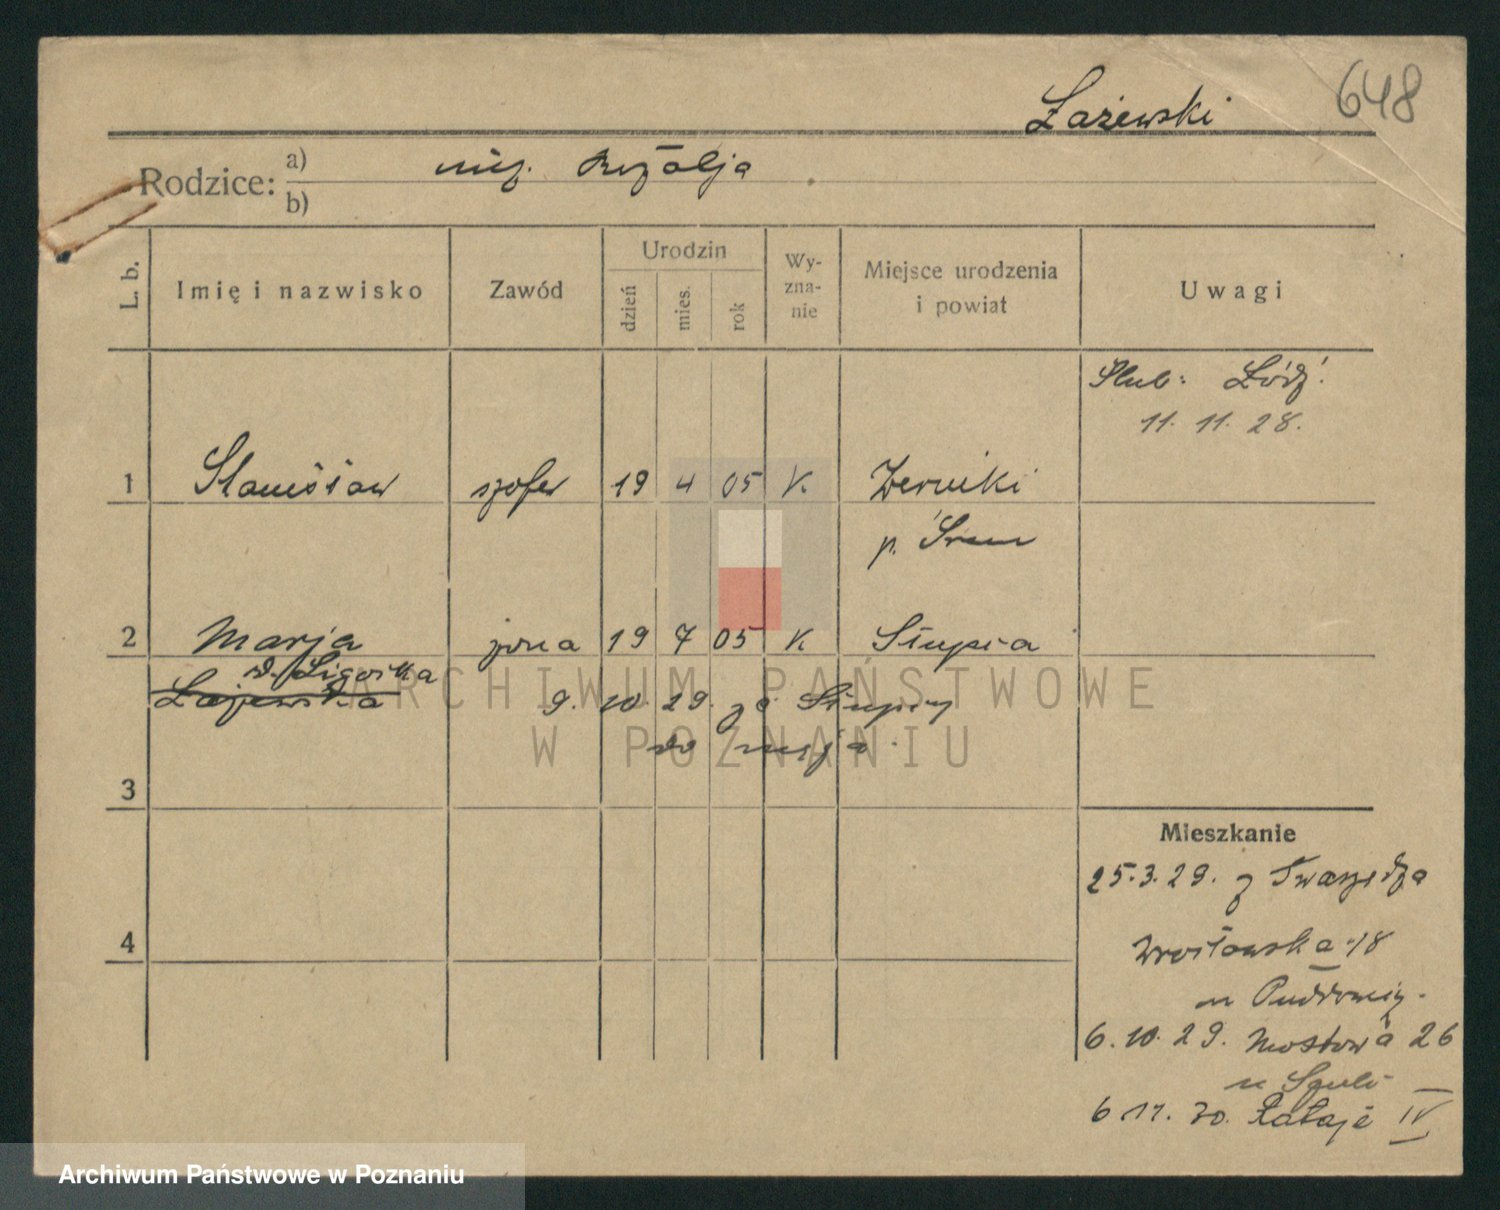 648
Łażewski
Rodzice: a) niez. Rozalja
b)
L. b.
Imię i nazwisko
Zawód
Urodzin
dzień
mies.
rok
Wy-
zna-
nie
Miejsce urodzenia
i powiat
Uwagi
Ślub: Łódź.
11. 11. 28.
1 Stanisław szofer 19 4 05 K Zerniki
p. Śrem
2 Marja żona 19 7 05 K Słupia
d. Ligocka
Łażewska 9. 10. 29. za Słupcy
do męża.
3
Mieszkanie
25.3.29. z Swarzędza
4
Wrocławska 18
6.10.29. Mostowa 26
6 11. 30. Rataje IV
ARCHIWUM PAŃSTWOWE
W POZNANIU
Archiwum Państwowe w Poznaniu